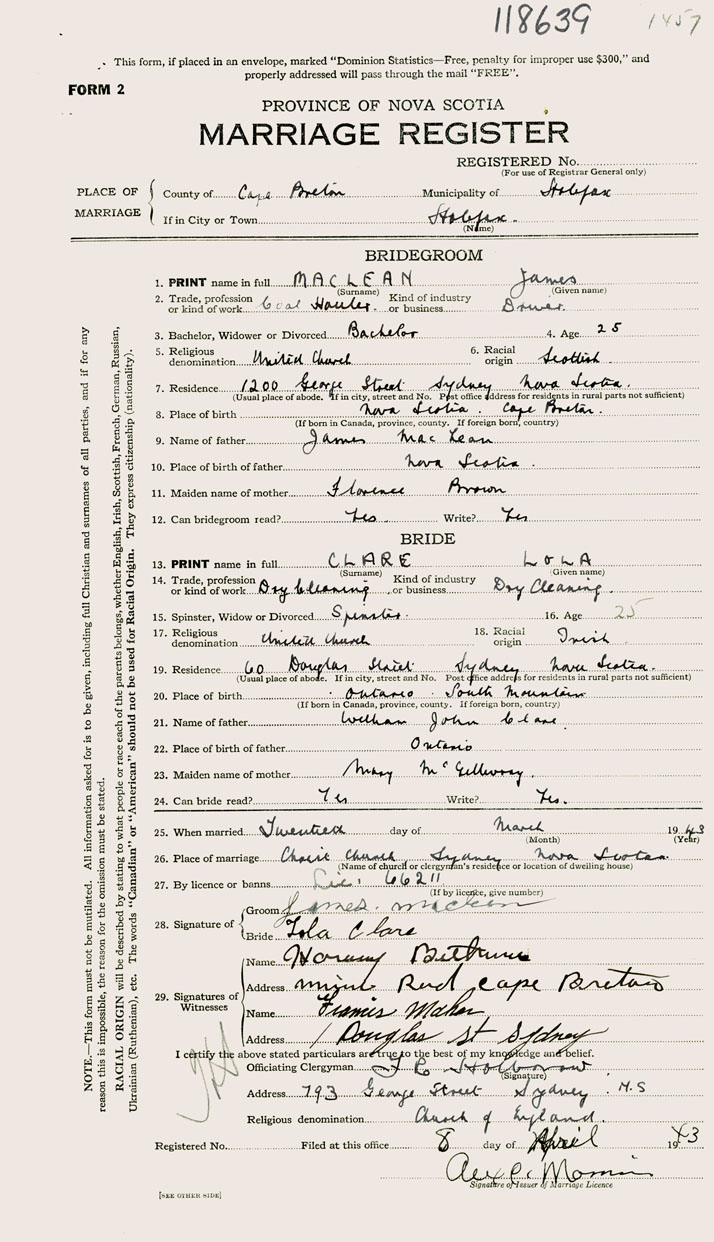 118639 1457
This form, if placed in an envelope, marked "Dominion Statistics—Free, penalty for improper use $300," and
properly addressed will pass through the mail "FREE".
FORM 2
PROVINCE OF NOVA SCOTIA
MARRIAGE REGISTER
REGISTERED No.
(For use of Registrar General only)
PLACE OF MARRIAGE
County of Cape Breton Municipality of Halifax
If in City or Town Halifax.
(Name)
BRIDEGROOM
1. PRINT name in full MACLEAN James
(Surname) (Given name)
2. Trade, profession or kind of work Coal Hauler. Kind of industry or business Driver.
3. Bachelor, Widower or Divorced Bachelor 4. Age 25
5. Religious denomination United Church 6. Racial origin Scottish.
7. Residence 1200 George Street Sydney Nova Scotia.
(Usual place of abode. If in city, street and No. Post office address for residents in rural parts not sufficient)
8. Place of birth Nova Scotia. Cape Breton.
(If born in Canada, province, county. If foreign born, country)
9. Name of father James Mac Lean
10. Place of birth of father Nova Scotia.
11. Maiden name of mother Florence Brown
12. Can bridegroom read? Yes. Write? Yes
BRIDE
13. PRINT name in full CLARE LOLA
(Surname) (Given name)
14. Trade, profession or kind of work Dry Cleaning. Kind of industry or business Dry Cleaning.
15. Spinster, Widow or Divorced Spinster. 16. Age 25
17. Religious denomination United Church 18. Racial origin Irish
19. Residence 60 Douglas Street Sydney Nova Scotia.
(Usual place of abode. If in city, street and No. Post office address for residents in rural parts not sufficient)
20. Place of birth Ontario South Mountain
(If born in Canada, province, county. If foreign born, country)
21. Name of father William John Clare.
22. Place of birth of father Ontario
23. Maiden name of mother Mary McGillivray.
24. Can bride read? Yes Write? Yes.
25. When married Twentieth day of March 1943
(Month) (Year)
26. Place of marriage Church, Sydney Nova Scotia.
(Name of church or clergyman's residence or location of dwelling house)
27. By licence or banns Lic. 66211
(If by licence, give number)
28. Signature of
Groom James. Maclean
Bride Lola Clare
29. Signatures of Witnesses
Name Bethune
Address Mira Rd Cape Breton
Name Francis Maher
Address 1 Douglas St Sydney
I certify the above stated particulars are true to the best of my knowledge and belief.
Officiating Clergyman
(Signature)
Address 793 George Street Sydney. N.S
Religious denomination Church of England.
Registered No. Filed at this office 8 day of April 1943
Signature of Issuer of Marriage Licence
[SEE OTHER SIDE]
NOTE.—This form must not be mutilated. All information asked for is to be given, including full Christian and surnames of all parties, and if for any
reason this is impossible, the reason for the omission must be stated.
RACIAL ORIGIN will be described by stating to what people or race each of the parents belongs, whether English, Irish, Scottish, French, German, Russian,
Ukrainian (Ruthenian), etc. The words "Canadian" or "American" should not be used for Racial Origin. They express citizenship (nationality).